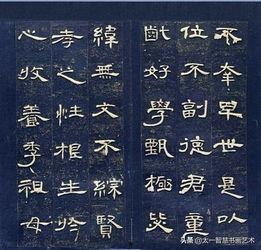 不幸早世是以
位不副德君童
齔好學甄極毖
緯無文不綜賢
孝之性根生於
心收養季祖母
头条 @太一智慧书画艺术